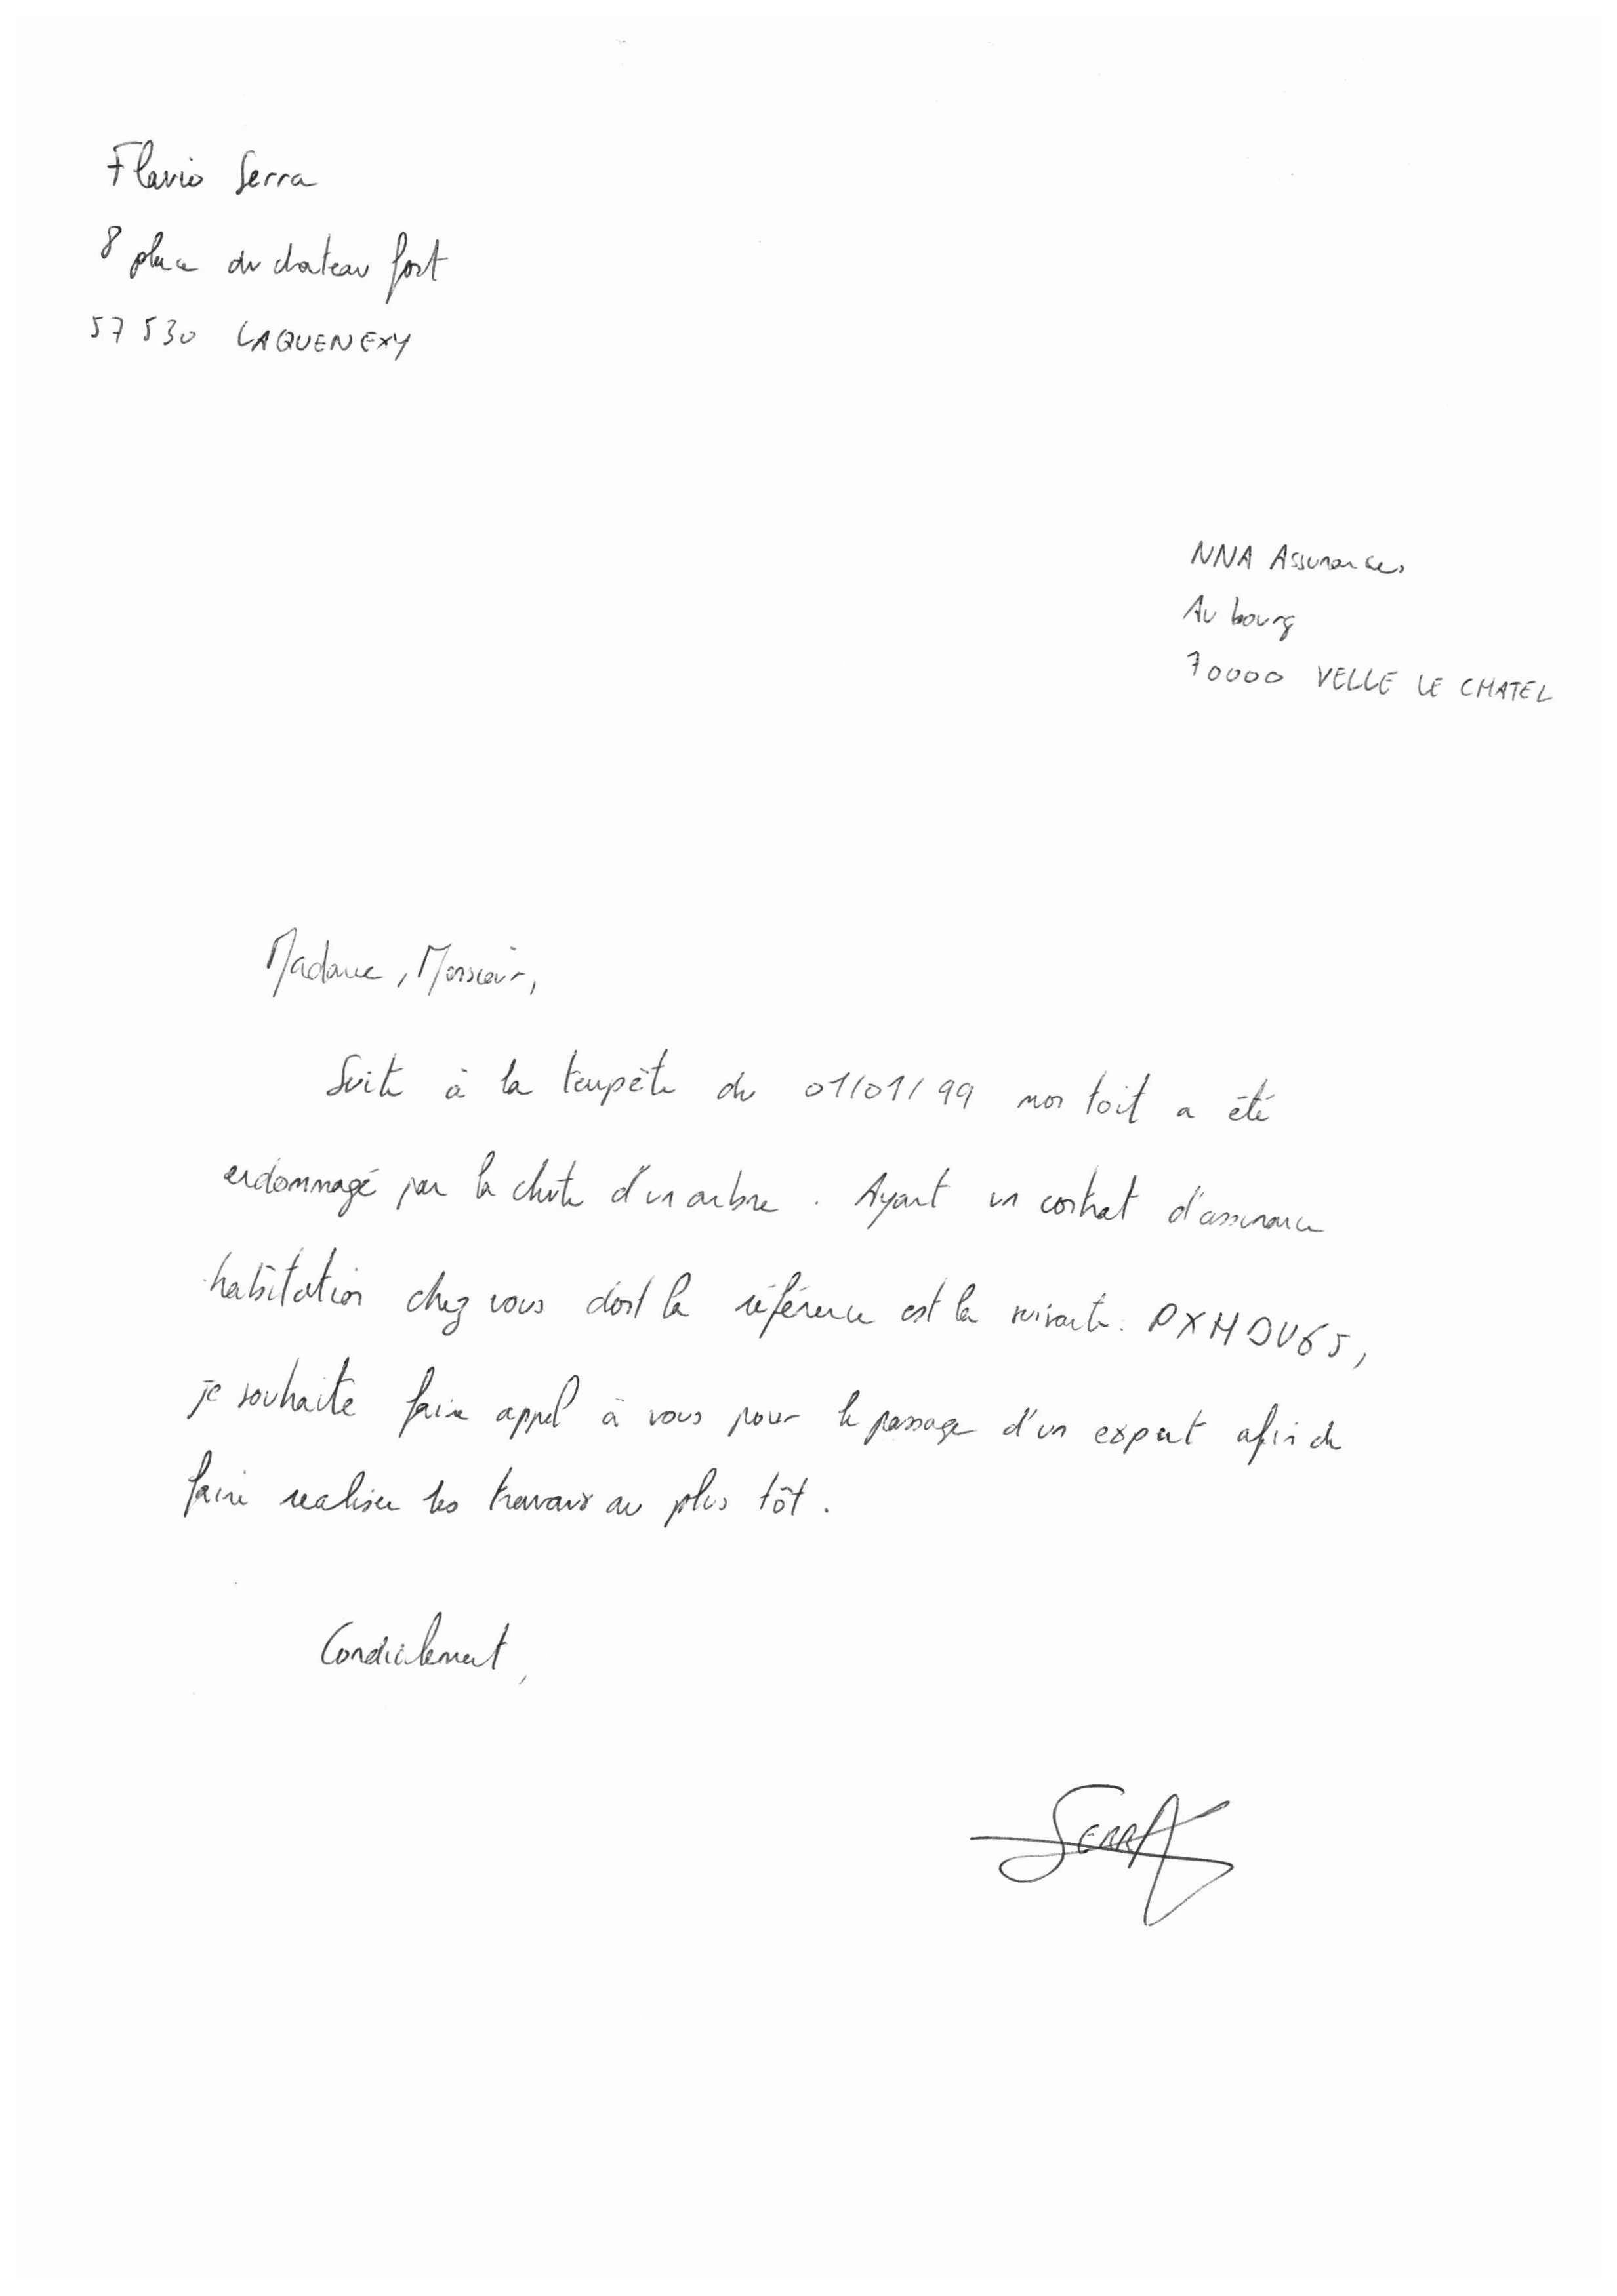 Flavio Serra
8 place du chateau fort
57530 LAQUENEXY
NNA Assurances
Au bourg
70000 VELLE LE CHATEL
Madame, Monsieur,
Suite à la tempête du 01/01/99 mon toit a été
endommagé par la chute d'un arbre. Ayant un contrat d'assurance
habitation chez vous dont la référence est la suivante: DXMDV65,
je souhaite faire appel à vous pour le passage d'un expert afin de
faire realiser les travaux au plus tôt.
Cordialement,
SERRA